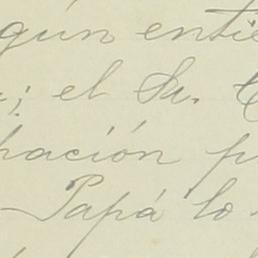 gún entie
; el Sr.
pación p
Papá lo